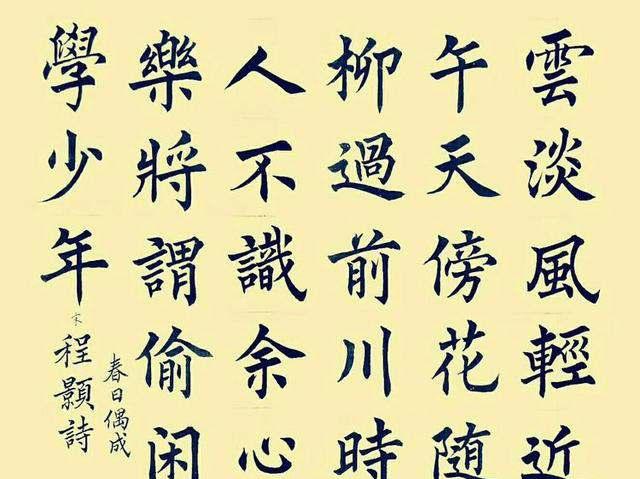 雲淡風輕近
午天傍花随
柳過前川時
人不識余心
樂將謂偷闲
學少年
春日偶成
宋程顥詩